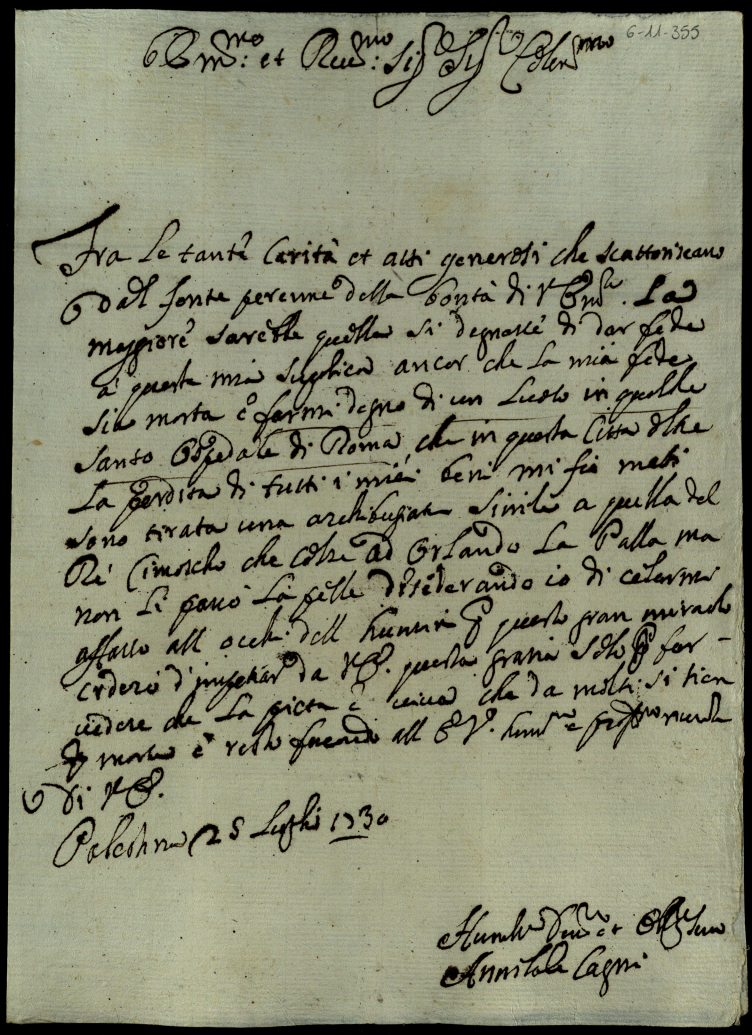 6-11-355
Em.mo et Rev.mo Sig.r Sig.r Col.mo
Fra le tante Carità et atti generosi che scattoriscano
dal fonte perenne della bontà di V Em.za. La
maggiore sarebbe quella si degnasse di dar fede
a questa mia suplica ancor che la mia fede
sia morta e farmi degno di un Luoco in qualche
Santo Ospedale di Roma, che in questa Città oltre
la perdita di tutti i miei beni mi fù
sono tirata una archibugiata simile a quella del
Rè Cimoscho che colse ad Orlando la Palla ma
non li passò la pelle desiderando io di celarmi
affatto all occhi dell questo gran miracolo
crederò d'impetrar da V E. questa grazia solo p far
vedere che la pietà è viva che da molti si tien
p morta e resto facendo all E V. hum.ma e prof.ma
di V E.
Palestrina 25 Luglio 1730
Humil.mo Dev.mo et Obl.mo Servo
Annibale Cagni